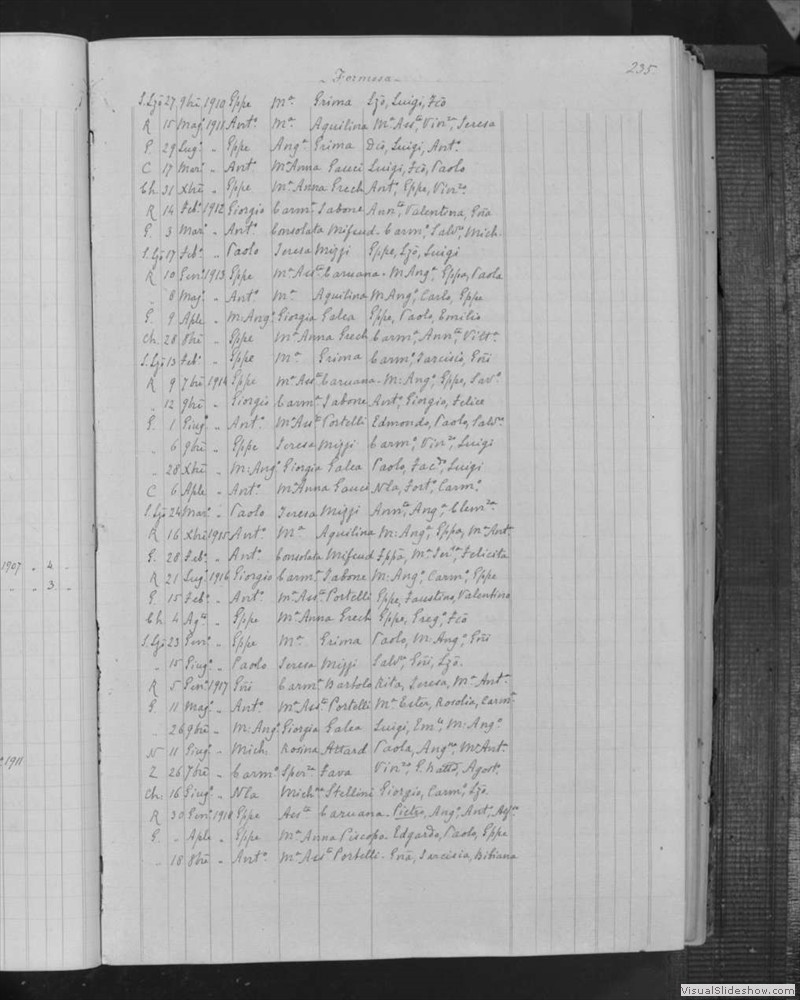 235
- Formosa -
S. Lzō 27 9bre 1910 Gppe Mª Grima Lzō, Luigi, Fcō
R 15 Magº 1911 Antº Mª Aquilina Mª Assta, Vinza, Teresa
G. 29 Lugº " Gppe Angª Grima Dcō, Luigi, Antº
C 17 Marº " Antº Mª Anna Gauci Luigi, Fcō, Paolo
Ch. 31 Xbre " Gppe Mª Anna Grech Antº, Gppe, Vinzo
R 14 Febº 1912 Giorgio Carmª Sabone Annta, Valentina,
G. 3 Marº " Antº Consolata Mifsud - Carmº, Salvº, Mich.
S. Lzō 17 Febº " Paolo Teresa Mizzi Gppe, Lzō, Luigi
R 10 Genº 1913 Gppe Mª Assta Caruana - M. Angº, Gppa, Paola
" 8 Magº " Antº Mª Aquilina M Angº, Carlo, Gppe
G. 9 Aple " M: Angº Giorgia Galea Gppe, Paolo, Emilio
Ch. 28 8bre " Gppe Mª Anna Grech Carmª, Annta,
S. Lzō 13 Febº " Gppe Mª Grima Carmº, Tarcisio, Gñi
R 9 7bre 1914 Gppe Mª Assta Caruana - M: Angº, Gppe, Savº
" 12 9bre " Giorgio Carmª Sabone Antº, Giorgio, Felice
G. 1 Giugº " Antº Mª Assta Portelli Edmondo, Paolo, Salvº
" 6 9bre " Gppe Teresa Mizzi Carmº, Vinzo, Luigi
" 28 Xbre " M: Angº Giorgia Galea Paolo, Luigi
C 6 Aple " Antº Mª Anna Gauci Nla, Fortº, Carmº
S. Lzō 24 Marº " Paolo Teresa Mizzi Annta, Angª, Clemza
R 16 Xbre 1915 Antº Mª Aquilina M: Angª, Gppa, Mª Antª
G. 28 Febº " Antº Consolata Mifsud Gppa, Felicita
R 21 Lugº 1916 Giorgio Carmª Sabone M: Angº, Carmº, Gppe
G. 15 Febº " Antº Mª Assta Portelli Gppe, Faustino, Valentino
Ch. 4 Agto " Gppe Mª Anna Grech Gppe, Gregº, Fcō
S. Lzō 23 Genº " Gppe Mª Grima Paolo, M: Angº, Gñi
" 15 Giugº " Paolo Teresa Mizzi Salvº, Gñi, Lzō.
R 5 Genº 1917 Gñi Carmª Bartolo Rita, Teresa, Mª Antª
G. 11 Magº " Antº Mª Assta Portelli Mª Ester, Rosolia, Carmª
" 26 9bre " M: Angº Giorgia Galea Luigi, M: Angº
N 11 Giugº " Mich. Rosina Attard Paola, Mª Antª
Z 26 7bre " Carmº Sperza Fava Vinzo, G. Batta, Agostº
Ch. 16 Giugº " Nla Michna Stellini Giorgio, Carmº, Lzō.
R 30 Genº 1918 Gppe Assta Caruana - Pietro, Angº, Antº,
G. " Aple " Gppe Mª Anna Piscopo Edgardo, Paolo, Gppe
" 18 8bre " Antº Mª Assta Portelli - Gña, Tarcisia, Bibiana
1907 " 4 "
" " 3 "
1911
VisualSlideshow.com